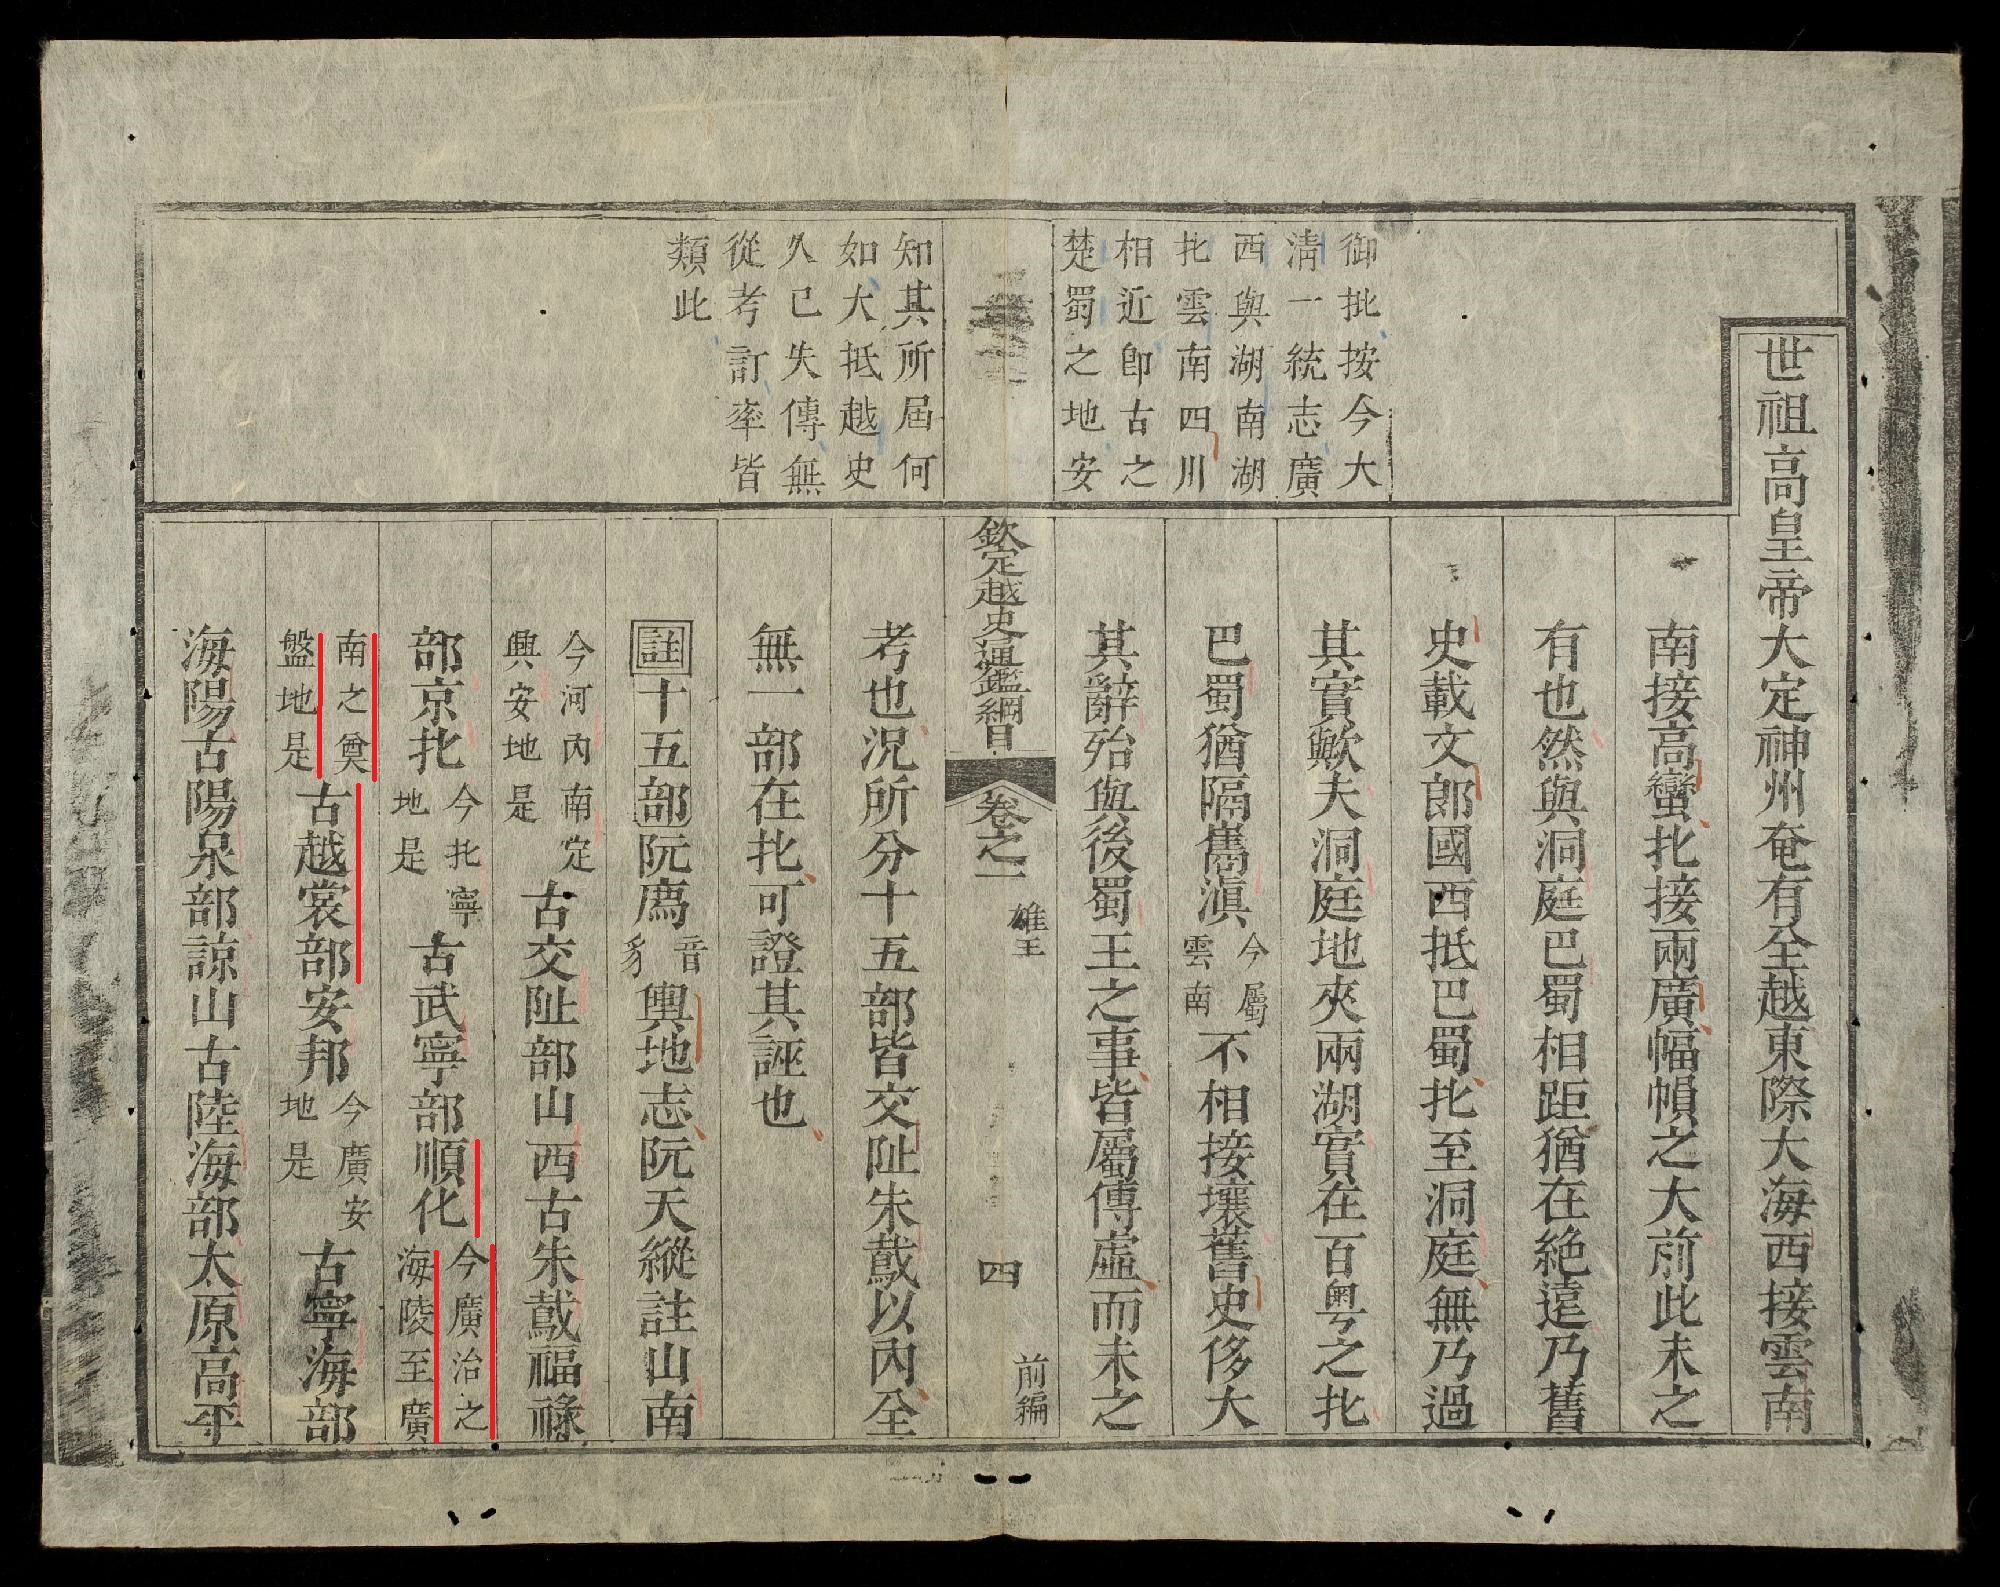 御批按今大
清一統志廣
西與湖南湖
北雲南四川
相近卽古之
楚蜀之地安
世祖高皇帝大定神州奄有全越東際大海西接雲南
南接高蠻北接兩廣幅幀之大前此未之
有也然與洞庭巴蜀相距猶在絶遠乃舊
史載文郎國西抵巴蜀北至洞庭無乃過
其實歟夫洞庭地夾兩湖實在百粤之北
巴蜀猶隔雟滇今屬雲南不相接壤舊史侈大
其辭殆與後蜀王之事皆屬傳虛而未之
欽定越史通鑑綱目 卷之一 雄王 四 前編
知其所屆何
如大抵越史
久已失傳無
從考訂率皆
類此
考也況所分十五部皆交阯朱鳶以內全
無一部在北可證其誣也
註十五部阮廌音豸輿地志阮天縱註山南
今河內南定興安地是古交阯部山西古朱鳶福祿
部京北今北寧地是古武寧部順化今廣治之海陵至廣
南之奠盤地是古越裳部安邦今廣安地是古寧海部
海陽古陽泉部諒山古陸海部太原高平